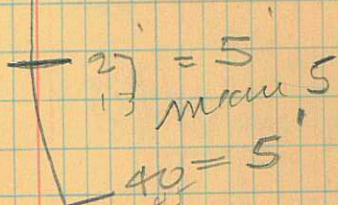 27' = 5'
13 mean 5
40 = 5'